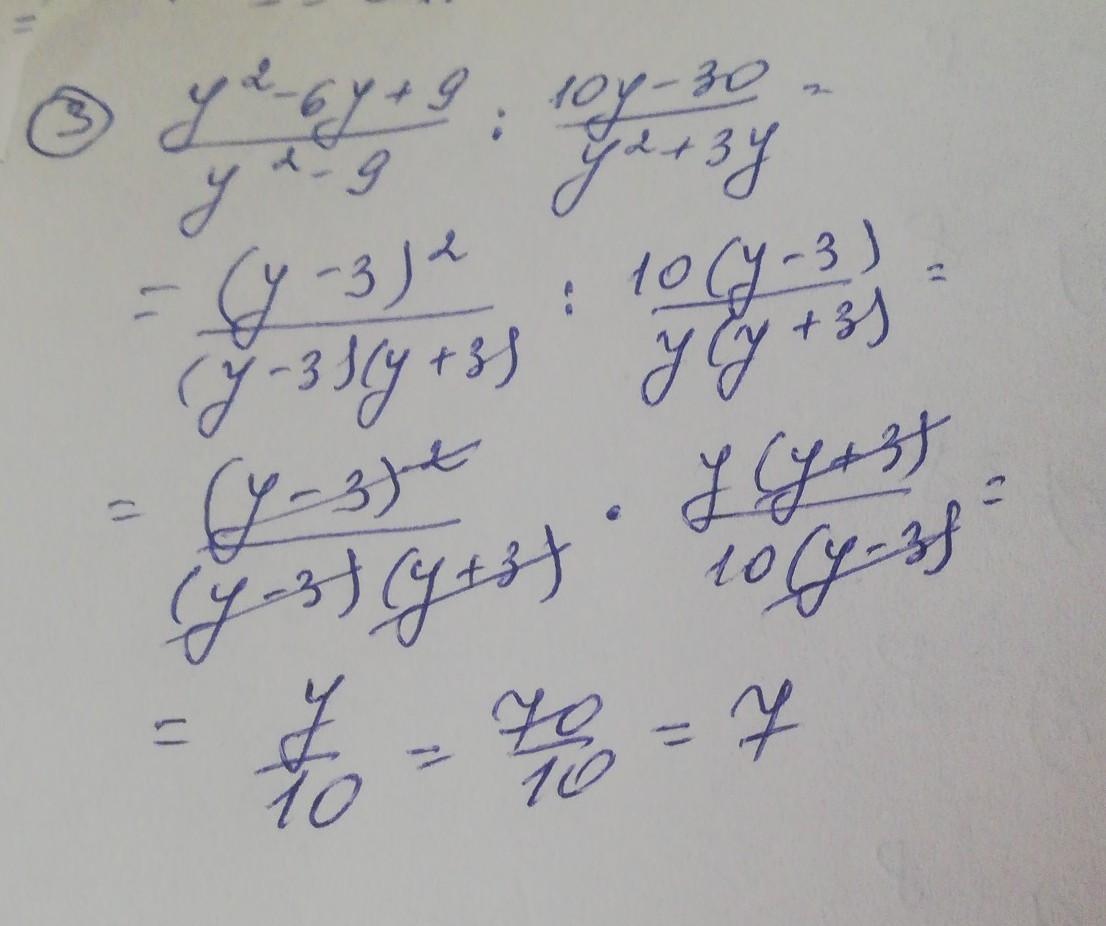 ③ (y² - 6y + 9)/(y² - 9) : (10y - 30)/(y² + 3y) =
= (y - 3)²/((y - 3)(y + 3)) : 10(y - 3)/(y(y + 3)) =
= (y - 3)²/((y - 3)(y + 3)) · y(y + 3)/(10(y - 3)) =
= y/10 = 70/10 = 7